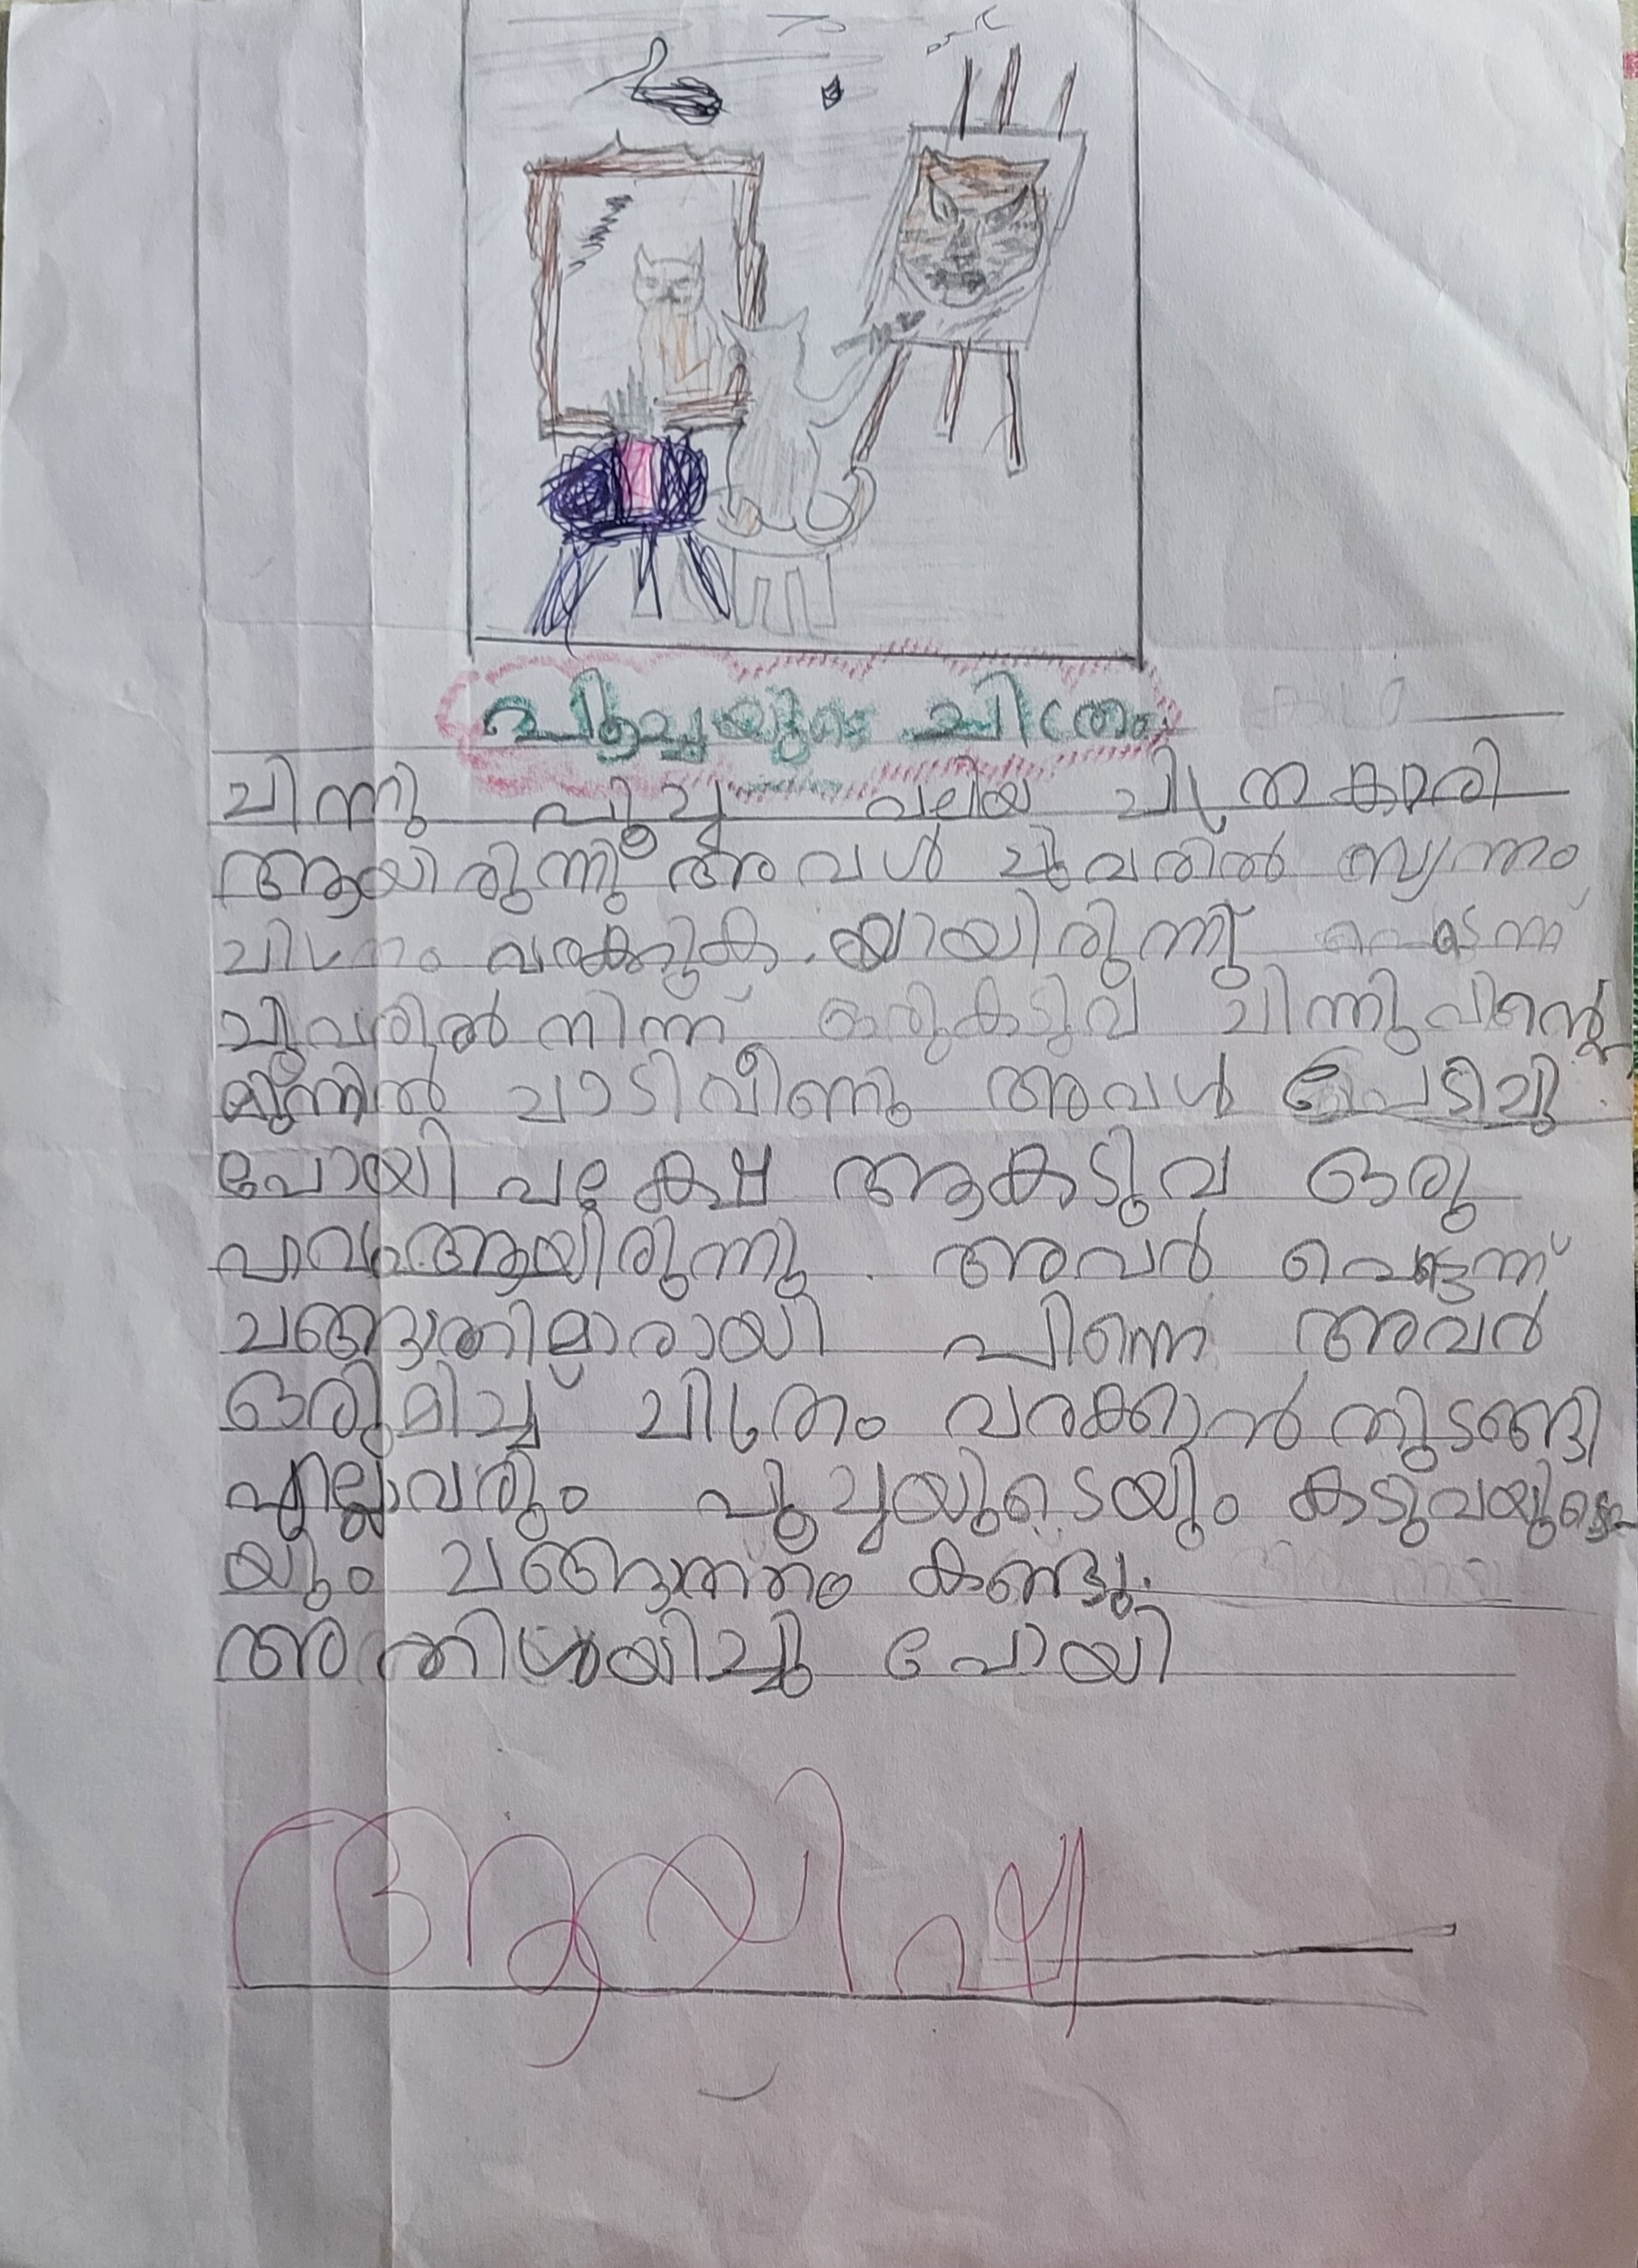 പൂച്ചയുടെ ചിത്രം
ചിന്നു പൂച്ച വലിയ ചിത്രകാരി
ആയിരുന്നു അവൾ ചുവരിൽ സ്വന്തം
ചിത്രം വരക്കുക യായിരുന്നു പെട്ടന്ന്
ചുവരിൽ നിന്ന് ഒരുകടുവ ചിന്നുവിന്റെ
മുന്നിൽ ചാടിവീണു അവൾ പേടിച്ചു
പോയി പക്ഷേ ആകടുവ ഒരു
പാവംആയിരുന്നു. അവർ പെട്ടന്ന്
ചങ്ങാതിമാരായി പിന്നെ അവർ
ഒരുമിച്ച് ചിത്രം വരക്കാൻ തുടങ്ങി
എല്ലാവരും പൂച്ചയുടെയും കടുവയുടെ
യും ചങ്ങാത്തം കണ്ടു.
അതിശയിച്ചു പോയി
ആയിഷ